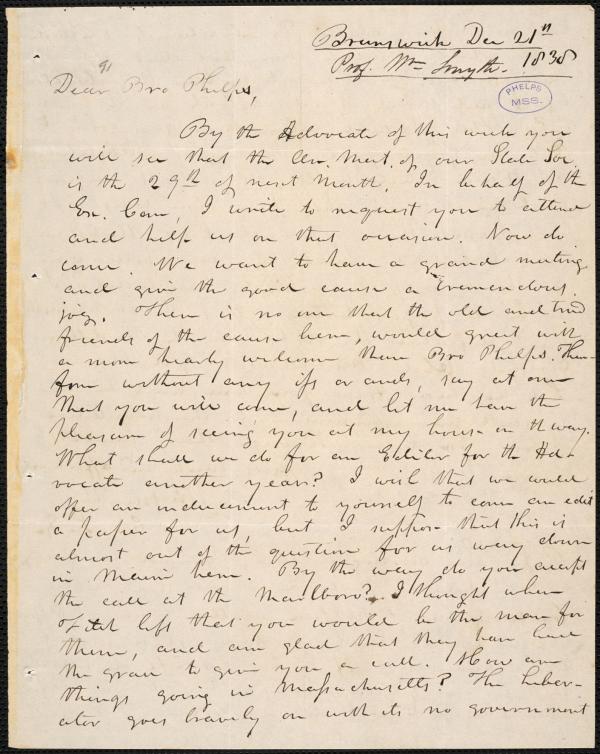 Brunswick Dec 21st
Prof. Wm Smyth. 1838
91
PHELPS
MSS.
Dear Bro Phelps,
By the Advocate of this week you
will see that the An. Meet. of our State Soc.
is the 29th of next month. In behalf of the
Ex. Com, I write to request you to attend
and help us on that occasion. Now do
come. We want to have a grand meeting
and give the good cause a tremendous
jog. There is no one that the old and tried
friends of the cause here, would greet with
a more hearty welcome than Bro Phelps. There-
fore without any ifs or ands, say at once
that you will come, and let me have the
pleasure of seeing you at my house on the way.
What shall we do for an Editor for the Ad-
vocate another year? I wish that we could
offer an inducement to yourself to come an edit
a paper for us, but I suppose that this is
almost out of the question for us way down
in Maine here. By the way do you accept
the call at the Marlboro? I thought when
Fitch left that you would be the man for
them, and am glad that they have had
the grace to give you a call. How are
things going in Massachusetts? The Liber-
ator goes bravely on with its no government